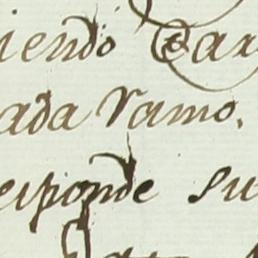 iendo Car
ada ramo.
esponde su